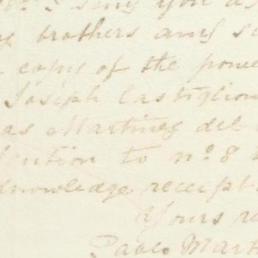 I send you as
brothers and s
copy of the powe
Joseph Castiglion
as Martinez del
ention to no. 8
knowledge receipt
Yours re
Pablo Mart